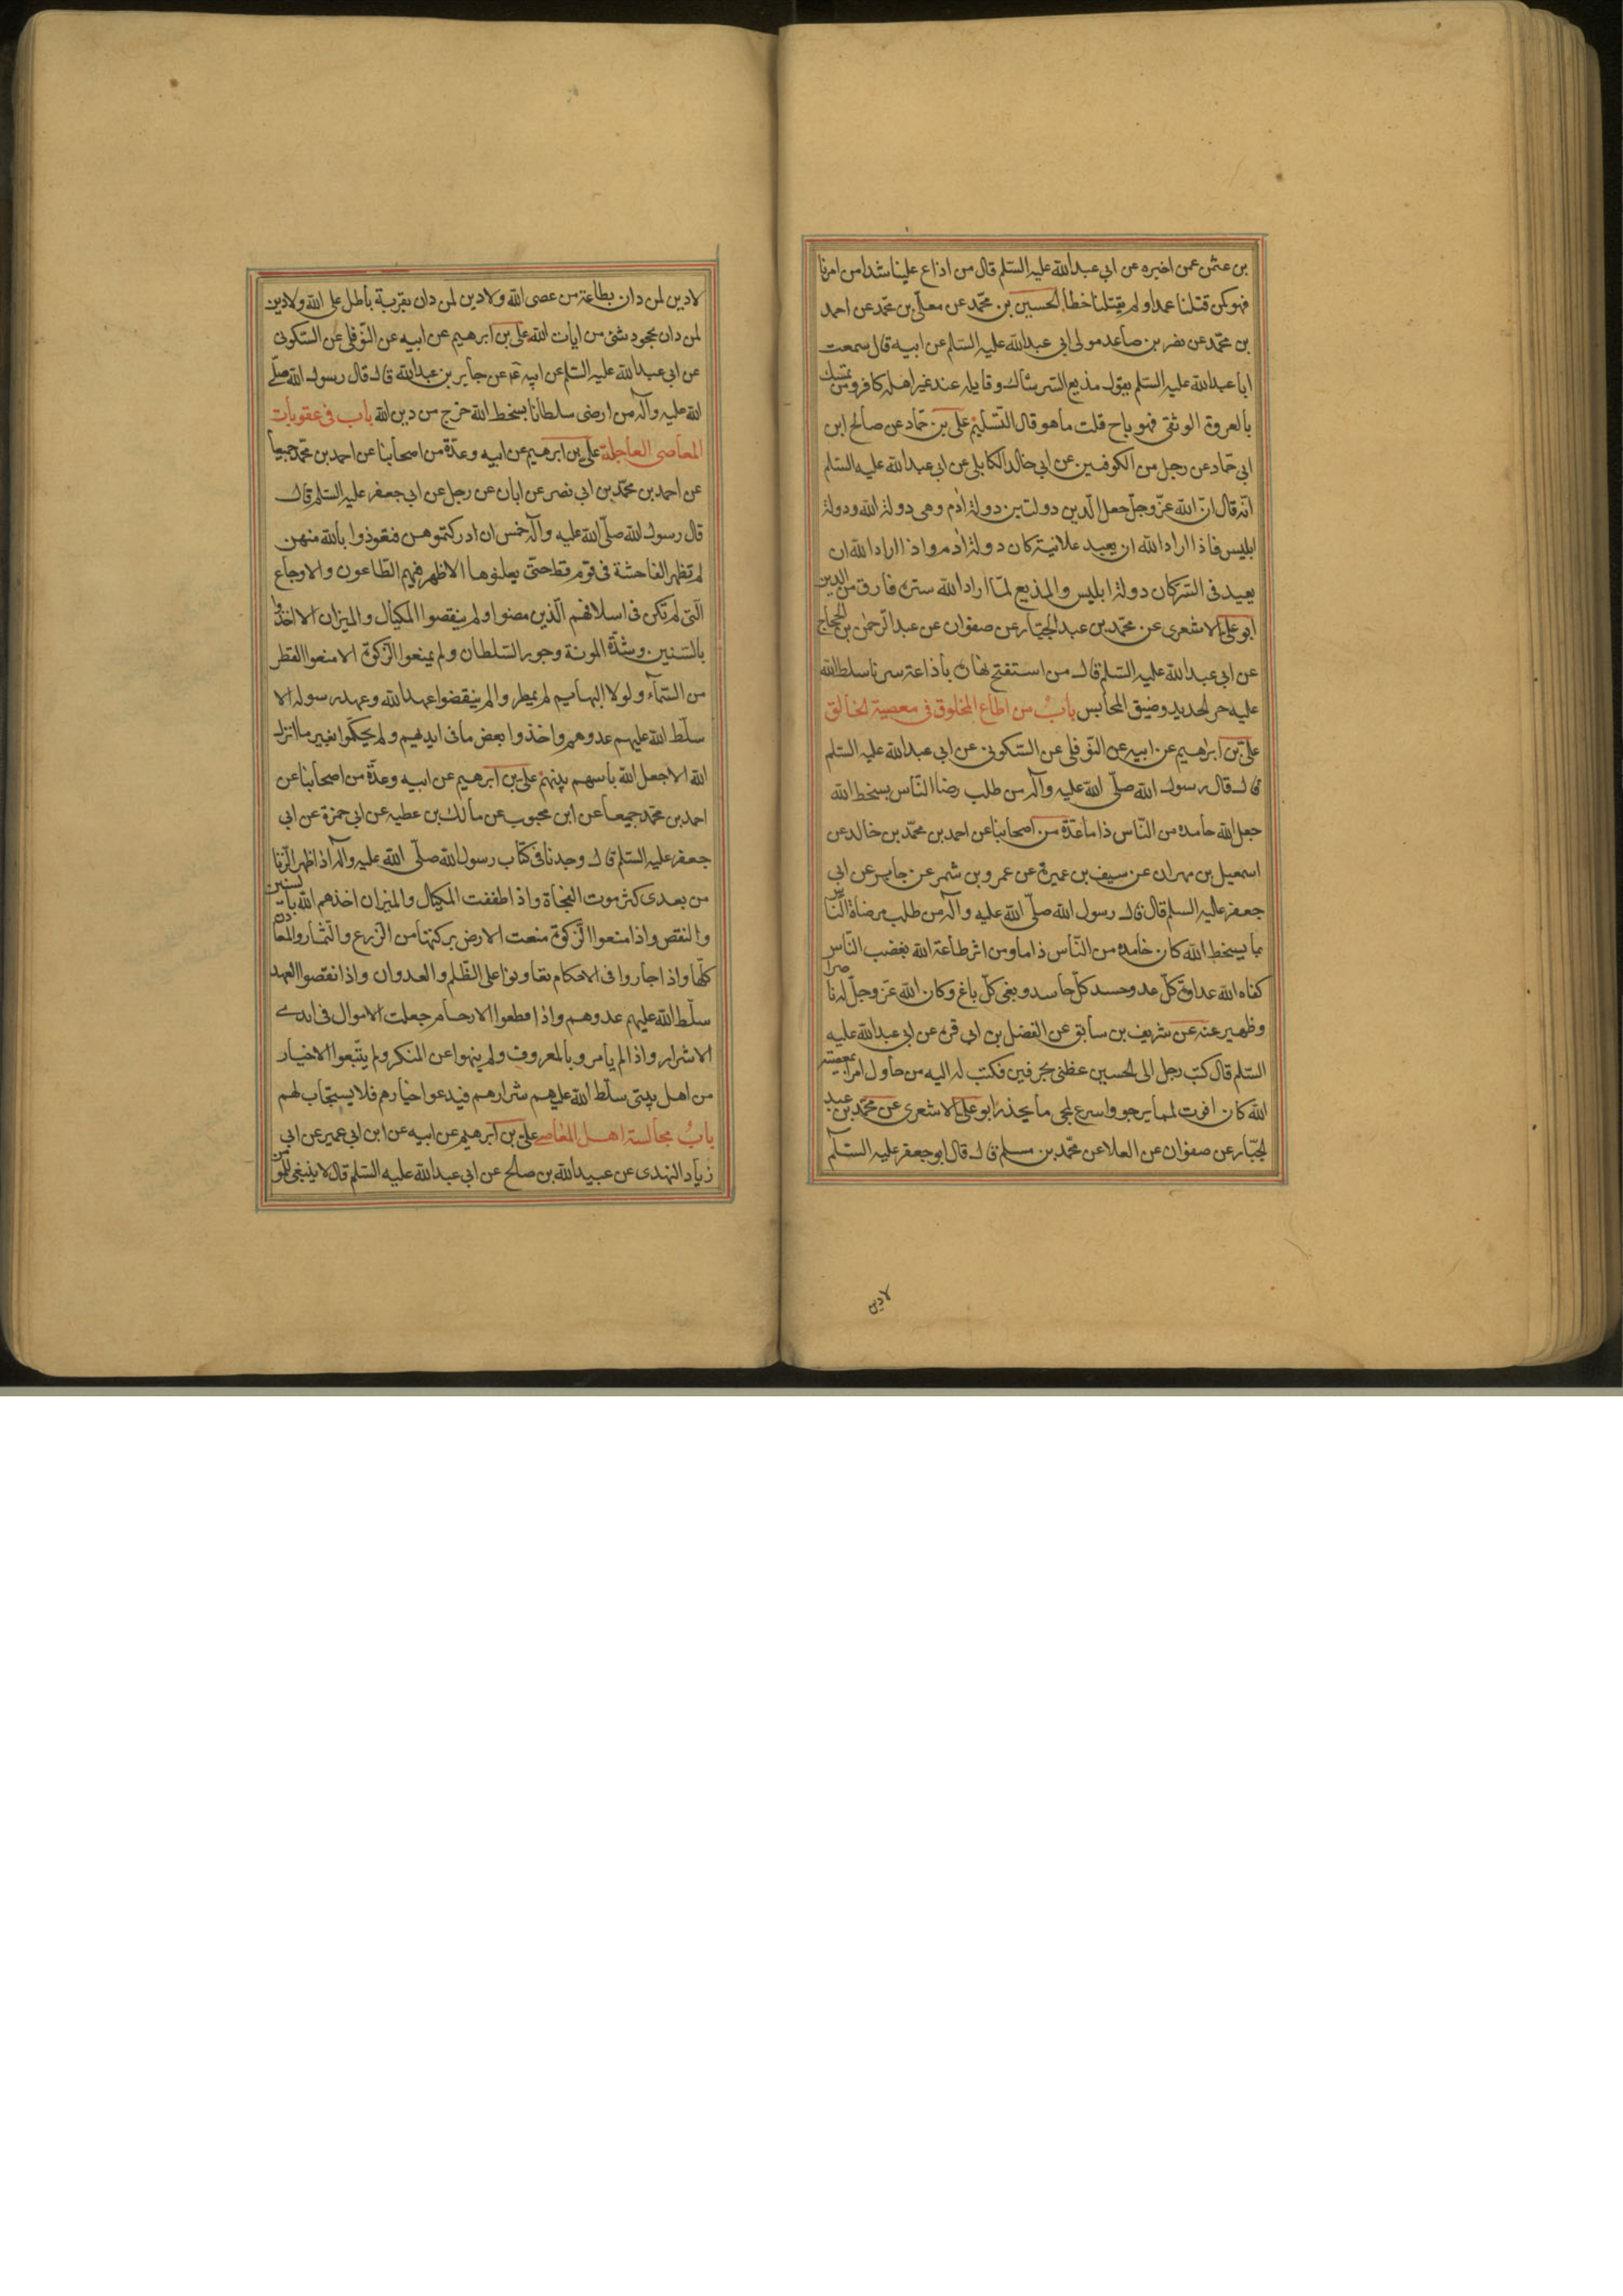 بن عثمن عمن اخبره عن ابي عبدالله عليه السلم قال من اذاع علينا شيئا من امرنا
فهو كمن قتلنا عمدا ولم يقتلنا خطأ الحسين بن محمّد عن معلّى بن محمّد عن احمد
بن محمّد عن نصر بن صاعد مولى ابي عبدالله عليه السلم عن ابيه قال سمعت
ابا عبدالله عليه السلم يقول مذيع السر شاك وقايله عند غير اهله كافر ومن تمسك
بالعروة الوثقى فهو ناج قلت ما هو قال التّسليم علي بن حمّاد عن صالح ابن
ابي حمّاد عن رجل من الكوفيين عن ابي خالد الكابلي عن ابي عبدالله عليه السلم
انّه قال انّ الله عزّ وجلّ جعل الدين دولتين دولة ادم وهي دولة الله ودولة
ابليس فاذا اراد الله ان يعبد علانية كان دولة ادم واذا اراد الله ان
يعبد في السّر كان دولة ابليس والمذيع لمّا اراد الله ستره فارق من الدين
ابو علي الاشعري عن محمّد بن عبد الجبّار عن صفوان عن عبد الرّحمن بن الحجاج
عن ابي عبدالله عليه السلم قال من استفتح نهاره باذاعة سرنا سلط الله
عليه حر الحديد وضيق المحابس باب من اطاع المخلوق في معصية الخالق
عليّ بن ابراهيم عن ابيه عن النّوفلي عن السّكوني عن ابي عبدالله عليه السلم
قال قال رسول الله صلّى الله عليه وآله من طلب رضا النّاس بسخط الله
جعل الله حامده من النّاس ذاما عدّة من اصحابنا عن احمد بن محمّد بن خالد عن
اسمعيل بن مهران عن سيف بن عميرة عن عمرو بن شمر عن جابر عن ابي
جعفر عليه السلم قال قال رسول الله صلّى الله عليه وآله من طلب مرضاة النّاس
بما يسخط الله كان حامده من النّاس ذاما ومن اثر طاعة الله بغضب النّاس
كفاه الله عداوة كلّ عدو وحسد كلّ حاسد وبغي كلّ باغ وكان الله عزّ وجلّ له ناصرا
وظهير عنه عن شريف بن سابق عن الفضل بن ابي قرة عن ابي عبدالله عليه
السّلم قال كتب رجل الى الحسين عظني بحرفين فكتب له اليه من حاول امرا بمعصية
الله كان افوت لما يرجو واسرع لمجي ما يحذر ابو علي الاشعري عن محمّد بن عبد
الجبّار عن صفوان عن العلا عن محمّد بن مسلم قال قال ابو جعفر عليه السّلم
لا دين
لا دين لمن دان بطاعة من عصى الله ولا دين لمن دان بفرية باطل على الله ولا دين
لمن دان بجحود شئ من ايات الله علي بن ابرهيم عن ابيه عن النّوفلي عن السّكوني
عن ابي عبدالله عليه السلم عن ابيه عن جابر بن عبدالله قال قال رسول الله صلّى
الله عليه وآله من ارضى سلطانا بسخط الله خرج من دين الله باب في عقوبات
المعاصي العاجلة علي بن ابرهيم عن ابيه وعدّة من اصحابنا عن احمد بن محمّد جميعا
عن احمد بن محمّد بن ابي نصر عن ابان عن رجل عن ابي جعفر عليه السلم قال
قال رسول الله صلّى الله عليه وآله خمس ان ادركتموهن فتعوذوا بالله منهن
لم تظهر الفاحشة في قوم قط حتى يعلنوها الا ظهر فيهم الطاعون والاوجاع
الّتي لم تكن في اسلافهم الّذين مضوا ولم ينقصوا المكيال والميزان الا اخذوا
بالسّنين وشدّة المونة وجور السّلطان ولم يمنعوا الزكوة الا منعوا القطر
من السّمآء ولولا البهايم لم يمطروا ولم ينقضوا عهد الله وعهد رسوله الا
سلّط الله عليهم عدوهم واخذوا بعض ما في ايديهم ولم يحكموا بغير ما انزل
الله الا جعل الله باسهم بينهم علي بن ابرهيم عن ابيه وعدّة من اصحابنا عن
احمد بن محمّد جميعا عن ابن محبوب عن مالك بن عطيه عن ابي حمزة عن ابي
جعفر عليه السلم قال وجدنا في كتاب رسول الله صلّى الله عليه وآله اذا ظهر الزنا
من بعدى كثر موت الفجأة واذا طففت المكيال والميزان اخذهم الله بالسنين
والنقص واذا منعوا الزكوة منعت الارض بركتها من الزرع والثّمار والمعادن
كلّها واذا جاروا في الاحكام تعاونوا على الظّلم والعدوان واذا نقضوا العهد
سلّط الله عليهم عدوهم واذا قطعوا الارحام جعلت الاموال في ايدى
الاشرار واذا لم يامروا بالمعروف ولم ينهوا عن المنكر ولم يتّبعوا الاخيار
من اهل بيتى سلّط الله عليهم شرارهم فيدعوا خيارهم فلا يستجاب لهم
باب مجالسة اهل المعاصي علي بن ابرهيم عن ابيه عن ابن ابي عمير عن ابي
زياد النهدى عن عبيد الله بن صالح عن ابي عبدالله عليه السّلم قال لا ينبغي للمومن